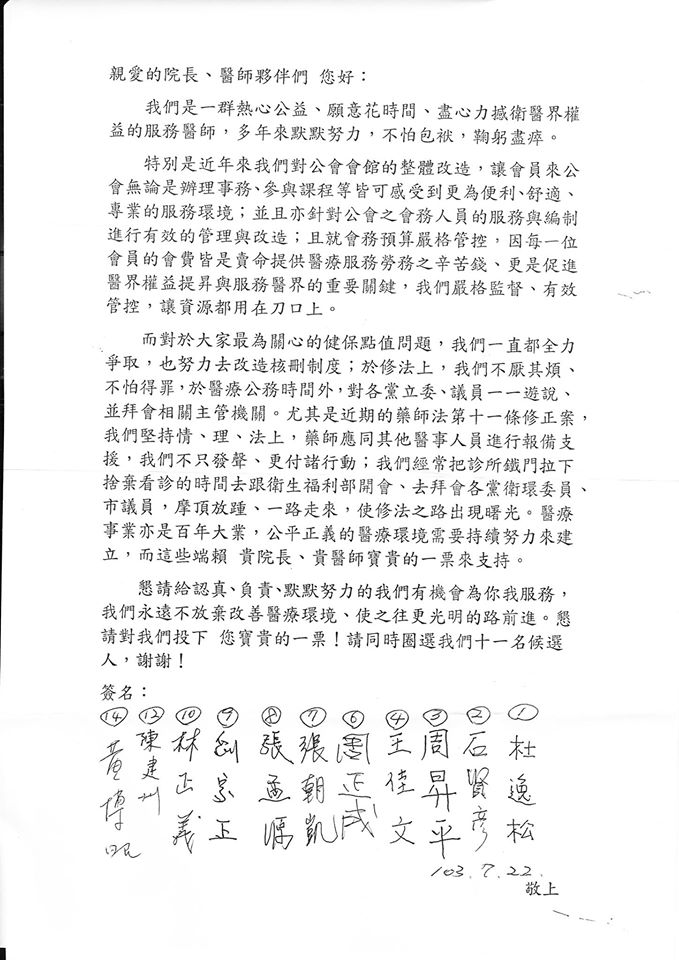 親愛的院長、醫師夥伴們 您好：
我們是一群熱心公益、願意花時間、盡心力撼衛醫界權
益的服務醫師，多年來默默努力，不怕包袱，鞠躬盡瘁。
特別是近年來我們對公會會館的整體改造，讓會員來公
會無論是辦理事務、參與課程等皆可感受到更為便利、舒適、
專業的服務環境；並且亦針對公會之會務人員的服務與編制
進行有效的管理與改造；且就會務預算嚴格管控，因每一位
會員的會費皆是賣命提供醫療服務勞務之辛苦錢、更是促進
醫界權益提昇與服務醫界的重要關鍵，我們嚴格監督、有效
管控，讓資源都用在刀口上。
而對於大家最為關心的健保點值問題，我們一直都全力
爭取，也努力去改造核刪制度；於修法上，我們不厭其煩、
不怕得罪，於醫療公務時間外，對各黨立委、議員一一遊說、
並拜會相關主管機關。尤其是近期的藥師法第十一條修正案，
我們堅持情、理、法上，藥師應同其他醫事人員進行報備支
援，我們不只發聲、更付諸行動；我們經常把診所鐵門拉下
捨棄看診的時間去跟衛生福利部開會、去拜會各黨衛環委員、
市議員，摩頂放踵、一路走來，使修法之路出現曙光。醫療
事業亦是百年大業，公平正義的醫療環境需要持續努力來建
立，而這些端賴 貴院長、貴醫師寶貴的一票來支持。
懇請給認真、負責、默默努力的我們有機會為你我服務，
我們永遠不放棄改善醫療環境、使之往更光明的路前進。懇
請對我們投下 您寶貴的一票！請同時圈選我們十一名候選
人，謝謝！
簽名：
① 杜逸松
② 石賢彥
③ 周昇平
④ 王佳文
⑥ 周正成
⑦ 張朝凱
⑧ 張孟源
⑨ 劉景正
⑩ 林正義
⑫ 陳建州
⑭ 黃博
103.7.22.
敬上